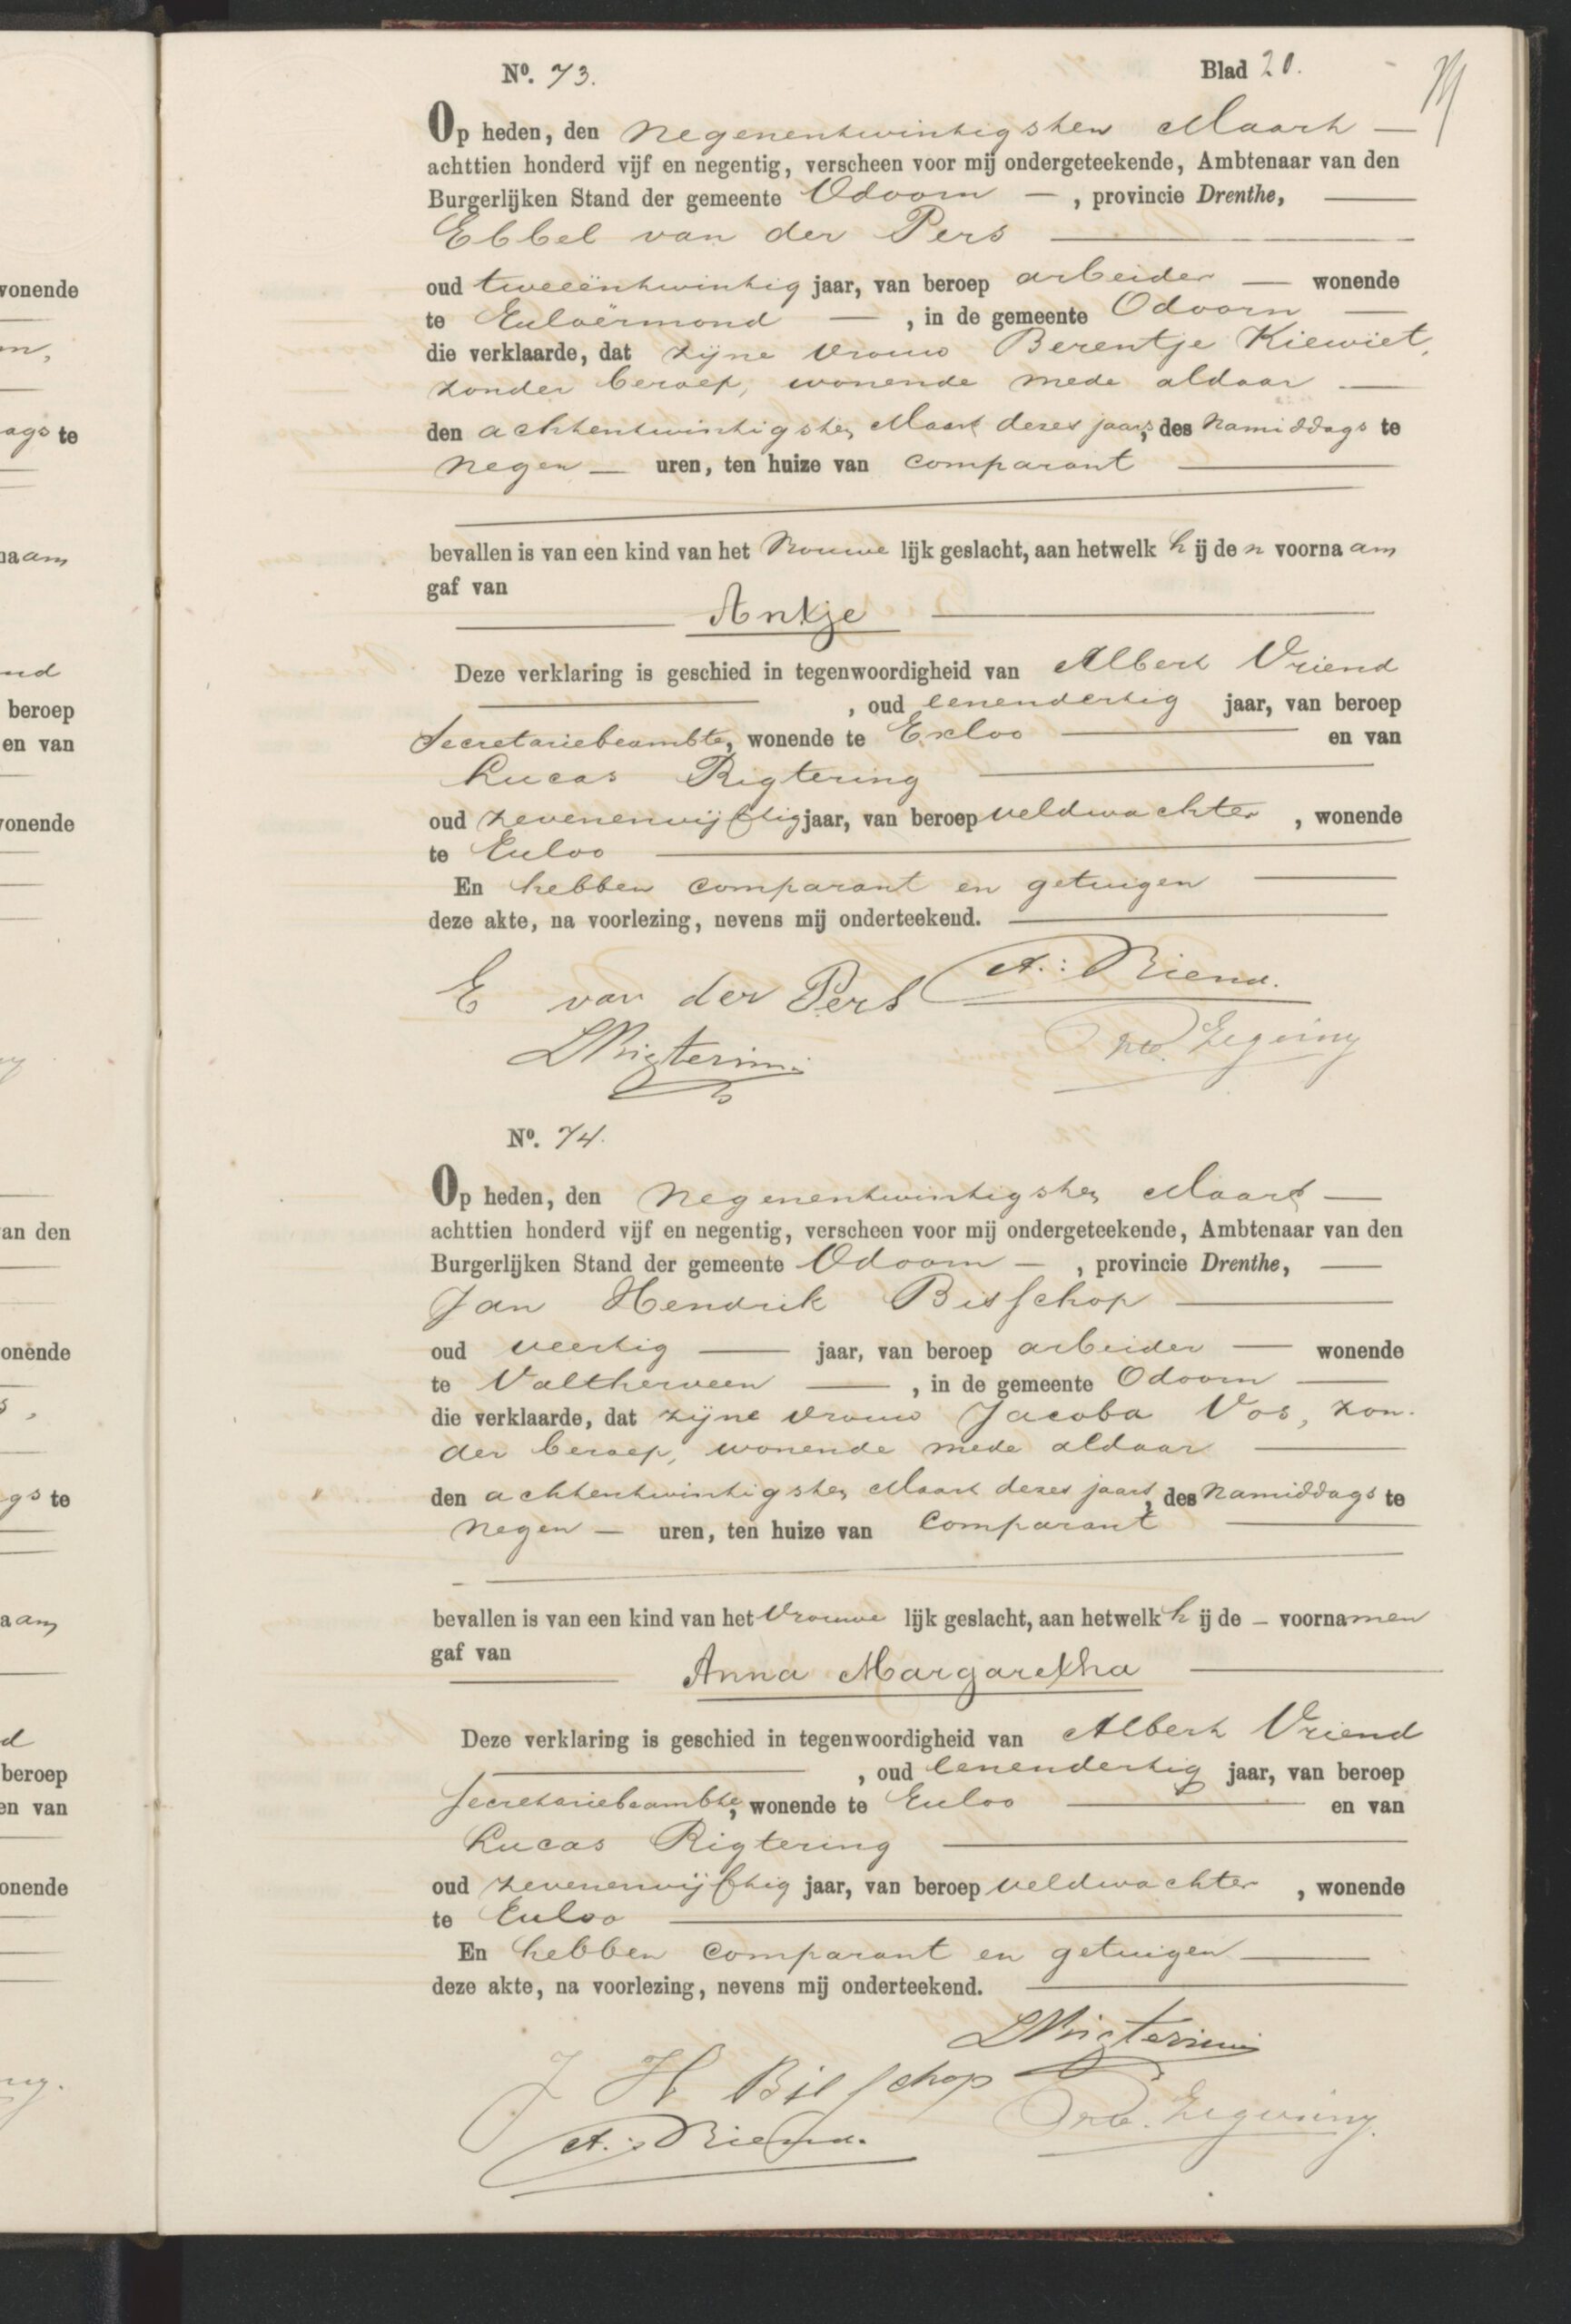 vonende
ags te
naam
beroep
en van
vonende
an den
onende
gs te
aam
d
beroep
en van
onende
Nº. 73.
Blad 20.
Op heden, den negenentwintigsten Maart —
achttien honderd vijf en negentig, verscheen voor mij ondergeteekende, Ambtenaar van den
Burgerlijken Stand der gemeente Odoorn — , provincie Drenthe,
Ebbel van der Pers
oud tweeëntwintig jaar, van beroep arbeider — wonende
te Exloërmond — , in de gemeente Odoorn —
die verklaarde, dat zijne vrouw Berentje Kiewiet,
zonder beroep, wonende mede aldaar —
den achtentwintigsten Maart dezes jaars, des namiddags te
negen — uren, ten huize van comparant
bevallen is van een kind van het vrouwe lijk geslacht, aan hetwelk h ij de n voorna am
gaf van
Antje
Deze verklaring is geschied in tegenwoordigheid van Albert Vriend
, oud eenendertig jaar, van beroep
Secretariebeambte, wonende te Exloo en van
Lucas Rigtering
oud zevenenvijftig jaar, van beroep veldwachter , wonende
te Exloo
En hebben comparant en getuigen
deze akte, na voorlezing, nevens mij onderteekend.
E van der Pers A: Vriend.
LRigtering
Nº. 74.
Op heden, den negenentwintigsten Maart —
achttien honderd vijf en negentig, verscheen voor mij ondergeteekende, Ambtenaar van den
Burgerlijken Stand der gemeente Odoorn — , provincie Drenthe,
Jan Hendrik Bisschop
oud veertig — jaar, van beroep arbeider — wonende
te Valtherveen — , in de gemeente Odoorn —
die verklaarde, dat zijne vrouw Jacoba Vos, zon-
der beroep, wonende mede aldaar
den achtentwintigsten Maart dezes jaars, des namiddags te
negen — uren, ten huize van comparant
bevallen is van een kind van het vrouwe lijk geslacht, aan hetwelk h ij de — voorna men
gaf van
Anna Margaretha
Deze verklaring is geschied in tegenwoordigheid van Albert Vriend
, oud eenendertig jaar, van beroep
Secretariebeambte, wonende te Exloo en van
Lucas Rigtering
oud zevenenvijftig jaar, van beroep veldwachter , wonende
te Exloo
En hebben comparant en getuigen
deze akte, na voorlezing, nevens mij onderteekend.
LRigtering
J H Bisschop
A: Vriend.